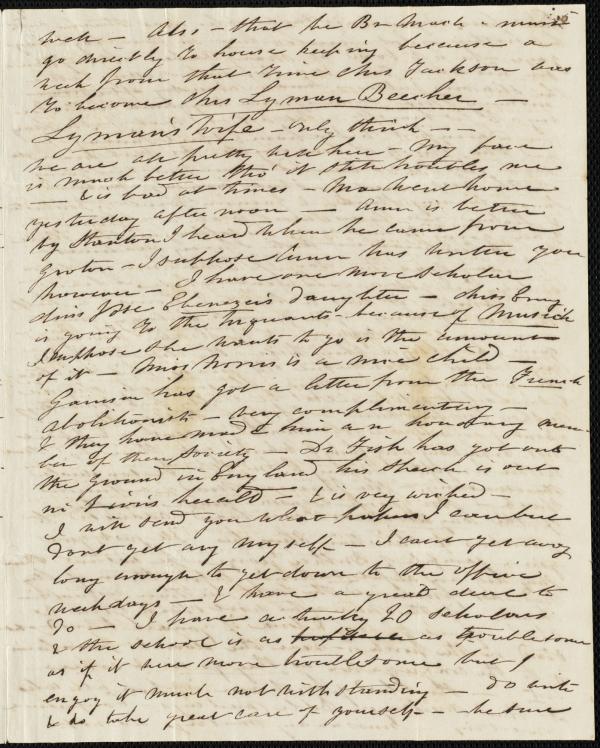 week — Also — that he Br Mack — must
go directly to house keeping because a
week from that time Mrs Jackson was
to become Mrs Lyman Beecher —
Lyman's wife — only think — —
we are all pretty well here — My face
is much better tho' it still troubles me
— & is bad at times — Ma went home
yesterday afternoon — Ann is better
by Stanton I heard when he came from
Groton — I suppose Ann has written you
however — I have one more scholar
Miss Ebenezer's daughter — Miss Emy
is going to the because of Musick
I suppose she wants to go is the amount
of it — Miss Norris is a nice child —
Garrison has got a letter from the French
abolitionists — very complimentary —
& they have made him an honorary mem
ber of their Society — Dr Fisk has got out
the ground in England his speech is out
in Zion's herald — & is very wicked —
I will send you what papers I can but
dont get any myself — I cant get away
long enough to get down to the office
week days — I have a great deal to
do — I have a twenty 20 scholars
& the school is as as troublesome
as if it were more troublesome but I
enjoy it much notwithstanding — do write
& do take great care of yourself — be sure